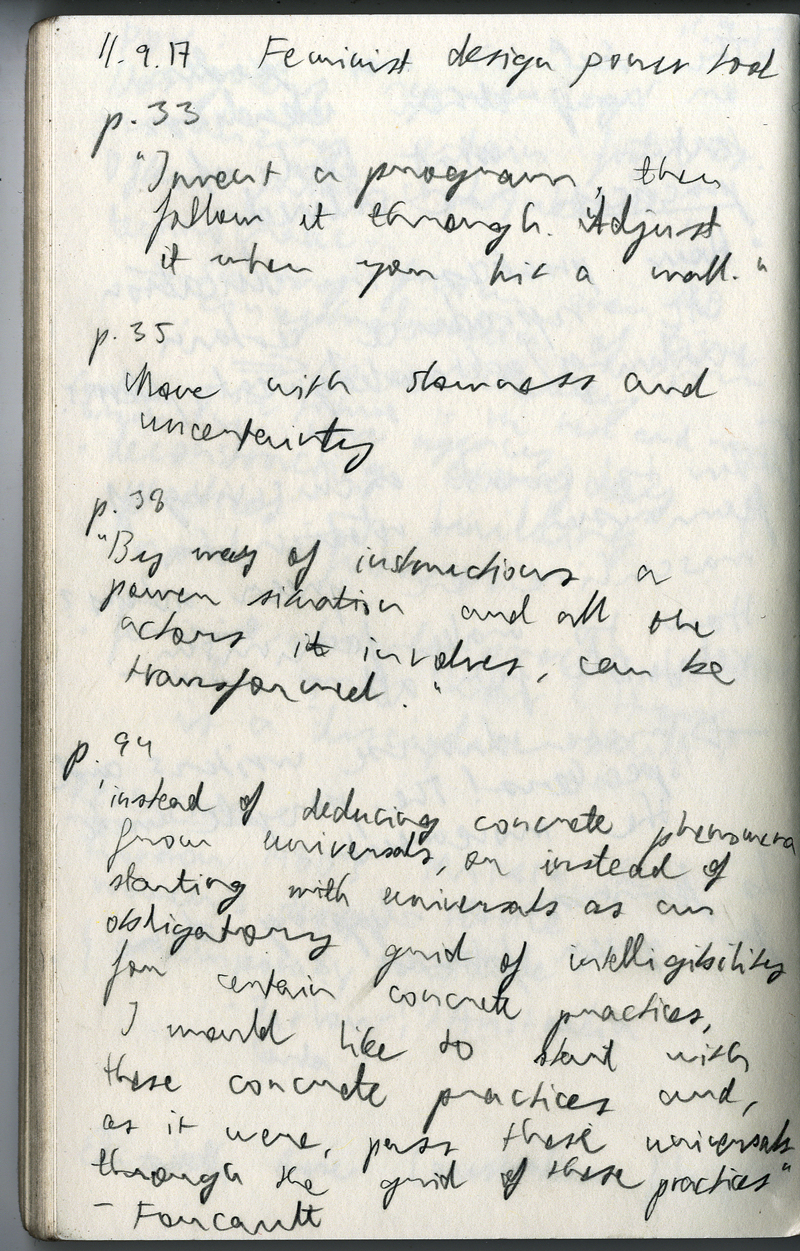 11.9.17 Feminist design power tool
p.33
"Invent a program, then
follow it through. Adjust
it when you hit a wall."
p.35
Move with slowness and
uncertainty
p.38
"By way of instructions a
power situation and all the
actors it involves, can be
transformed."
p.94
'instead of deducing concrete phenomena
from universals, or instead of
starting with universals as an
obligatory grid of intelligibility
for certain concrete practices,
I would like to start with
these concrete practices and,
as it were, pass these universals
through the grid of these practices"
- Foucault